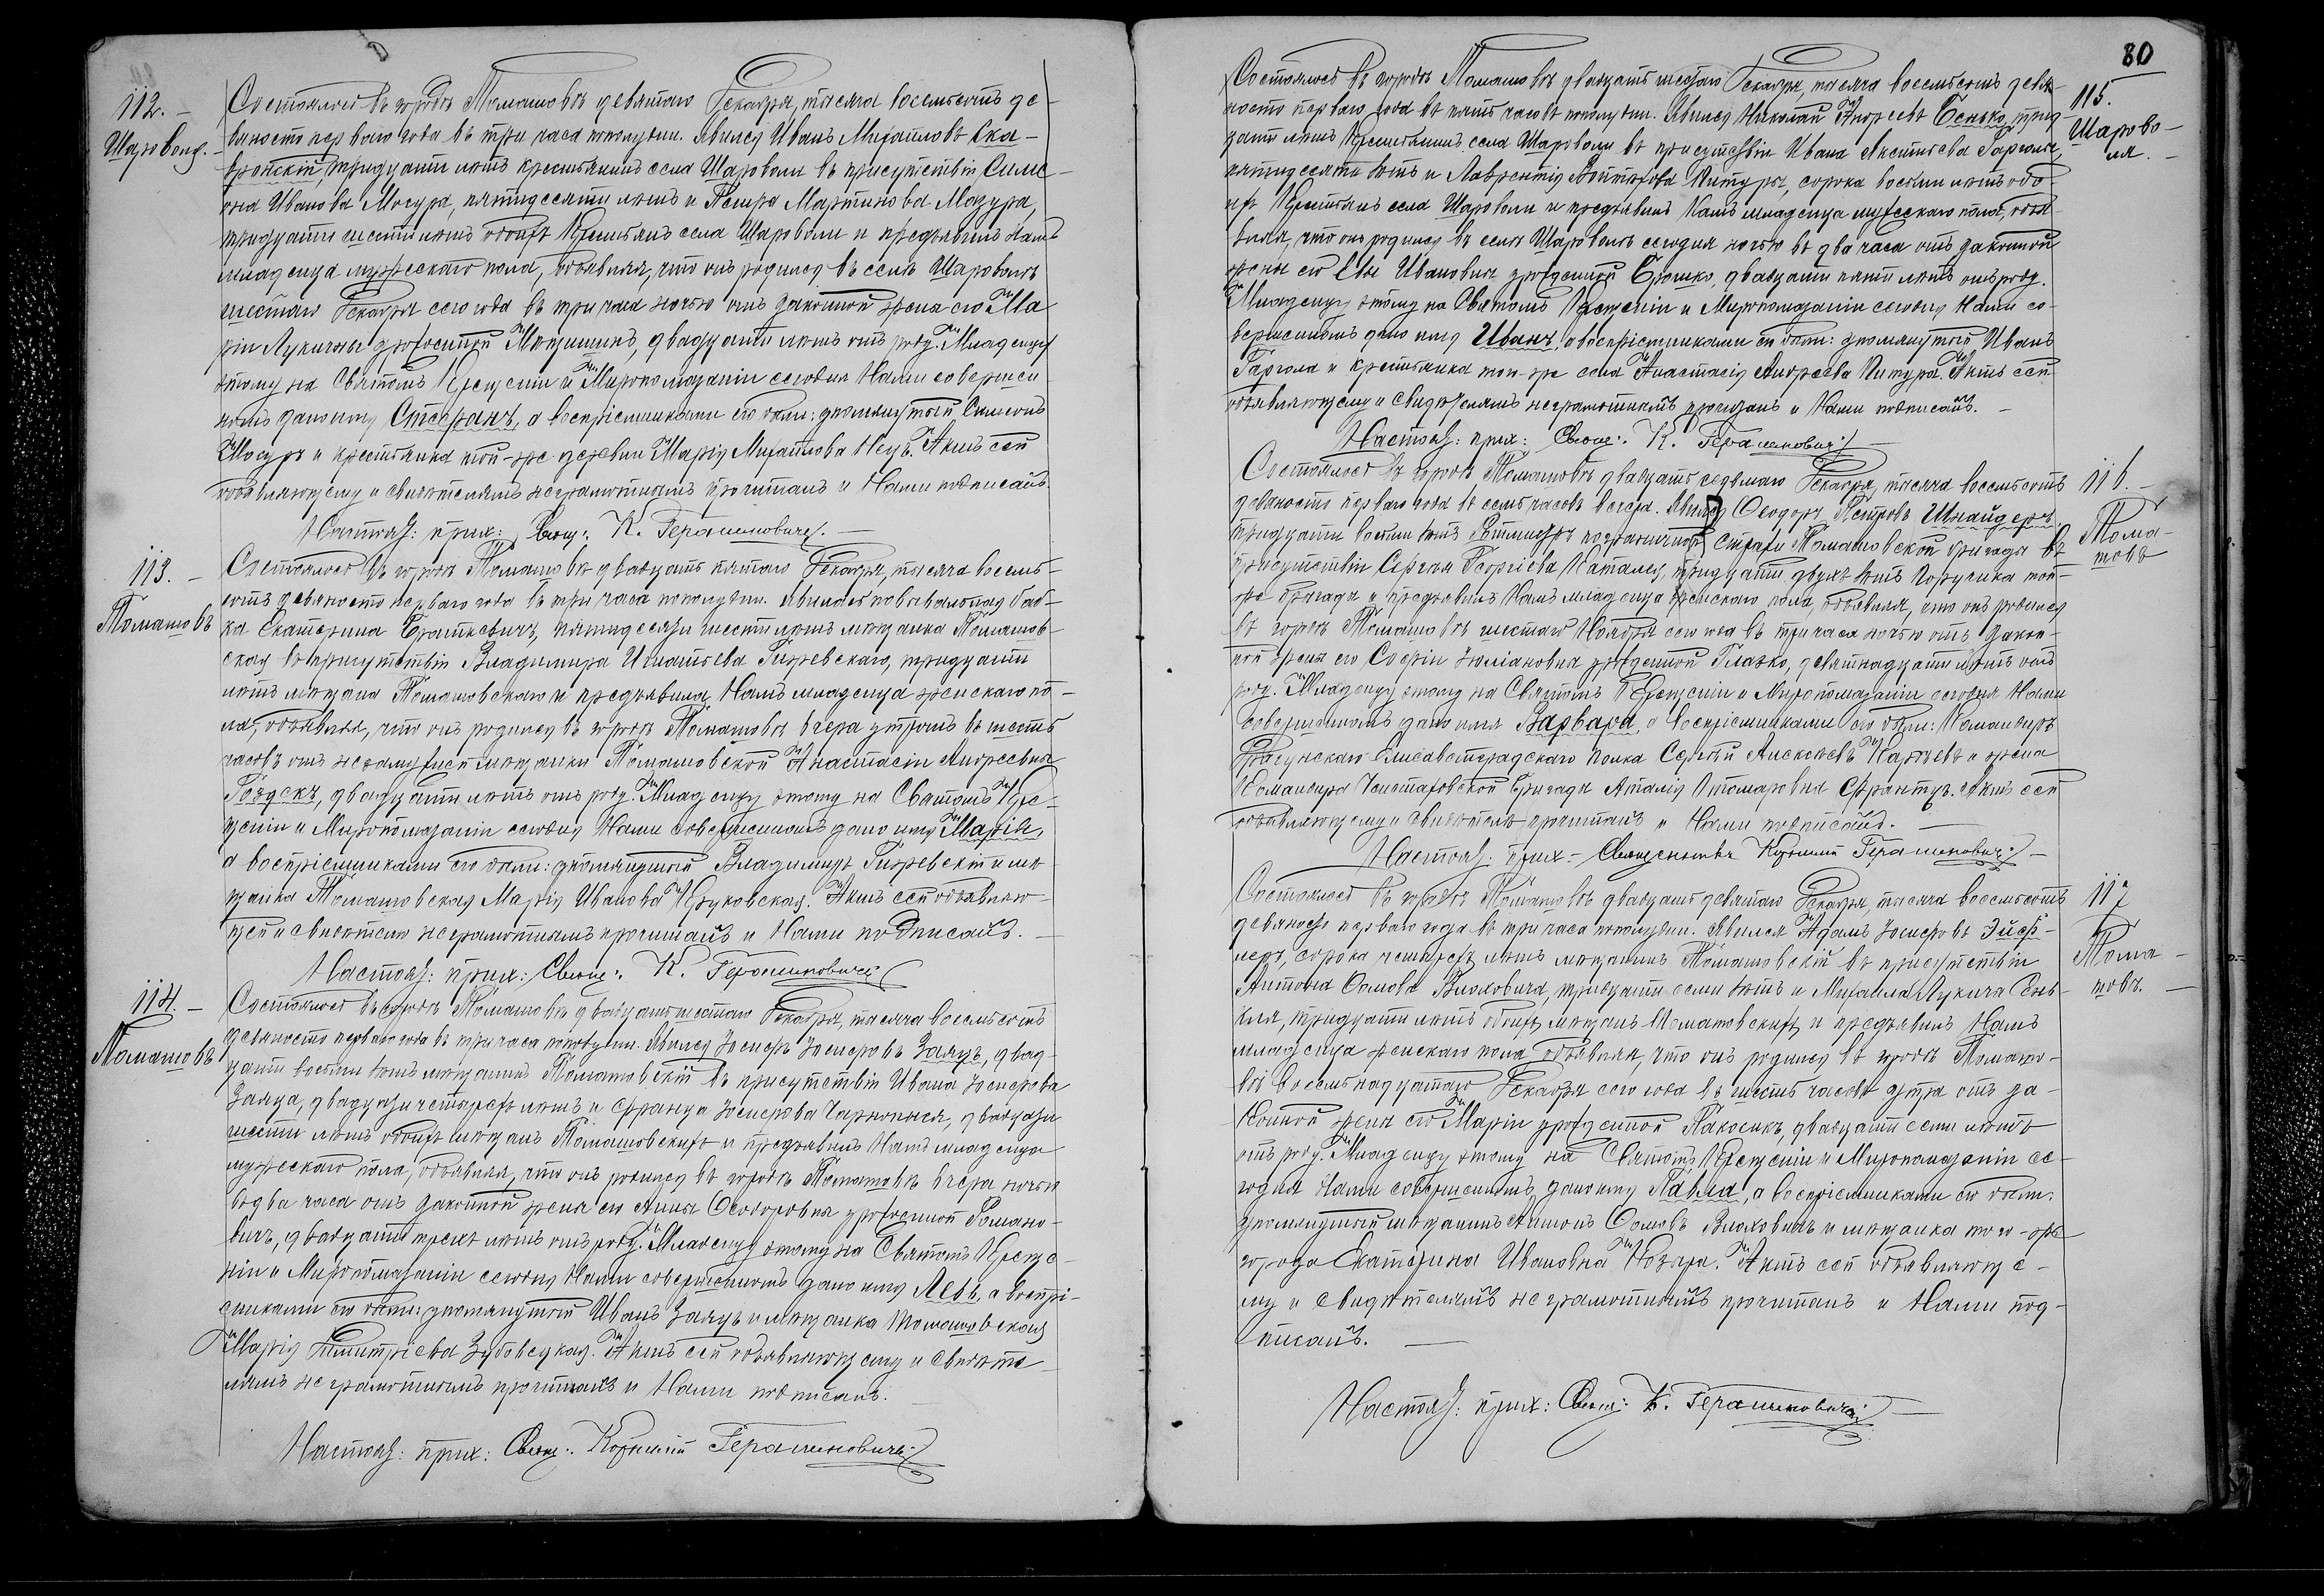 112. –
Шароволя. –
Состоялось въ городѣ Томашовѣ девятаго Декабря, тысяча восемьсотъ де-
вяносто перваго года въ три часа пополудни. Явился Иванъ Михайловъ Ска-
вронскій, тридцати лѣтъ крестьянинъ села Шароволи въ присутствіи Симе-
она Иванова Мосура, пятидесяти лѣтъ и Петра Мартинова Мазура,
тридцати шести лѣтъ обоихъ крестьянъ села Шароволи и предъявилъ намъ
младенца мужескаго пола, объявляя, что онъ родился въ селѣ Шароволѣ
шестаго Декабря сего года въ три часа ночью отъ законной жены его Ма
ріи Лукичны урожденной, двадцати лѣтъ отъ роду. Младенцу
этому на Святомъ Крещеніи и Миропомазаніи сегодня Нами совершен
номъ дано имя Стефанъ, а воспріемниками его были: упомянутый Симеонъ
Мосуръ и крестьянка той-же деревни Марія Михайлова. Актъ сей
объявляющему и свидѣтелямъ неграмотнымъ прочитанъ и Нами подписанъ.
Настоя: прих: Свящ: К. Герасимовичъ. –
113. –
Томашовъ
Состоялось въ городѣ Томашовѣ двадцать пятаго Декабря, тысяча восемь-
сотъ девяносто перваго года въ три часа пополудни. Явилась повивальная баб-
ка Екатерина Браткевичъ, пятидесяти шести лѣтъ мѣщанка Томашов-
ская въ присутствіи Владимира Игнатьева Гижевскаго, тридцати
лѣтъ мѣщана Томашовскаго и предъявила Намъ младенца женскаго по-
ла, объявляя, что онъ родился въ городѣ Томашовѣ вчера утромъ въ шесть
часовъ отъ незамужней мѣщанки Томашовской Анастасіи Андреевны
Гвздекъ, двадцати лѣтъ отъ роду. Младенцу этому на Святомъ Кре-
щеніи и Миропомазаніи сегодня Нами совершенномъ дано имя Марія,
а воспріемниками его были: упомянутый Владимиръ Гижевскій и мѣ
щанка Томашовская Марія Иванова Жуковская. Актъ сей объявляю-
щей и свидѣтелю неграмотнымъ прочитанъ и Нами подписанъ. –
Настоя: прих: Свящ: К. Герасимовичъ
114. –
Томашовъ
Состоялось въ городѣ Томашовѣ двадцать шестаго Декабря, тысяча восемьсотъ
девяносто перваго года въ три часа пополудни. Явился Іосифъ Іосифовъ Заяцъ, двад-
цати восьми лѣтъ мѣщанинъ Томашовскій въ присутствіи Ивана Іосифова
Заяца, двадцати четырехъ лѣтъ и Франца Іосифова, двадцати
шести лѣтъ обоихъ мѣщанъ Томашовскихъ и предъявилъ Намъ младенца
мужескаго пола, объявляя, что онъ родился въ городѣ Томашовѣ вчера ночью
въ два часа отъ законной жены его Анны Ѳеодоровны урожденной Романо-
вичъ, двадцати трехъ лѣтъ отъ роду. Младенцу этому на Святомъ Креще-
ніи и Миропомазаніи сегодня Нами совершенномъ дано имя Левъ, а воспрі-
емниками его были: упомянутый Иванъ Заяцъ и мѣщанка Томашовская
Марія Дмитріева Зубовецкая. Актъ сей объявляющему и свидѣте
лямъ неграмотнымъ прочитанъ и Нами подписанъ.
Настоя: прих: Свящ: Корнилій Герасимовичъ
80
115.
Шарово-
ля. –
Состоялось въ городѣ Томашовѣ двадцать шестаго Декабря, тысяча восемьсотъ девя-
носто перваго года въ пять часовъ пополудни. Явился Николай Андреевъ Сенько, трид
цати лѣтъ крестьянинъ села Шароволи въ присутствіи Ивана Гаргола,
пятидесяти лѣтъ и Лаврентія Войтѣхова Питуры, сорока восьми лѣтъ обо-
ихъ крестьянъ села Шароволи и предъявилъ Намъ младенца мужескаго пола, объя-
вляя, что онъ родился въ селѣ Шароволѣ сегодня ночью въ два часа отъ законной
жены его Евы Ивановны урожденной Брошко, двадцати пяти лѣтъ отъ роду.
Младенцу этому на Святомъ Крещеніи и Миропомазаніи сегодня Нами со-
вершенномъ дано имя Иванъ, а воспріемниками его были: упомянутый Иванъ
Гаргола и крестьянка той-же села Анастасія Андреева Питура. Актъ сей
объявляющему и свидѣтелямъ неграмотнымъ прочитанъ и Нами подписанъ. –
Настоя: прих: Свящ: К. Герасимовичъ –
116. –
Тома-
шовъ
Состоялось въ городѣ Томашовѣ двадцать седьмаго Декабря, тысяча восемьсотъ
девяносто перваго года въ семь часовъ вечера. Явился Ѳеодоръ Петровъ Шнайдеръ,
тридцати восьми лѣтъ Ротмистръ пограничной стражи Томашовской бригады въ
присутствіи Сергѣя Георгіева, тридцати двухъ лѣтъ Поручика той-
же бригады и предъявилъ Намъ младенца женскаго пола, объявляя, что онъ родился
въ городѣ Томашовѣ шестаго Ноября сего года въ три часа ночью отъ закон-
ной жены его Софіи Юліановны урожденной Глазко, девятнадцати лѣтъ отъ
роду. Младенцу этому на Святомъ Крещеніи и Миропомазаніи сегодня Нами
совершенномъ дано имя Варвара, а воспріемниками его были: Командиръ
Драгунскаго Елисаветградскаго полка Сергѣй Алексѣевъ и жена
Командира Ченстоховской Бригады Аталія Отомаровна Франтцъ. Актъ сей
объявляющему и свидѣтелю прочитанъ и Нами подписанъ. –
Настоя: прих: – Священникъ Корнилій Герасимовичъ –
117
Тома-
шовъ. –
Состоялось въ городѣ Томашовѣ двадцать девятаго Декабря, тысяча восемьсотъ
девяносто перваго года въ три часа пополудни. Явился Адамъ Іосифовъ Эйсф-
леръ, сорока четырехъ лѣтъ мѣщанинъ Томашовскій въ присутствіи
Антона Влаховича, тридцати семи лѣтъ и Михаила Лукича Сень-
ка, тридцати лѣтъ обоихъ мѣщанъ Томашовскихъ и предъявилъ Намъ
младенца женскаго пола объявляя, что онъ родился въ городѣ Томашо-
вѣ восемнадцатаго Декабря сего года въ шесть часовъ утра отъ за-
конной жены его Маріи урожденной Пакосикъ, двадцати семи лѣтъ
отъ роду. Младенцу этому на Святомъ Крещеніи и Миропомазаніи се-
годня Нами совершенномъ, дано имя, а воспріемниками его были:
упомянутый мѣщанинъ Антонъ Влаховичъ и мѣщанка того-же
города Екатерина Ивановна. Актъ сей объявляюще-
му и свидѣтелямъ неграмотнымъ прочитанъ и Нами под-
писанъ. –
Настоя: прих: Свящ: К. Герасимовичъ –